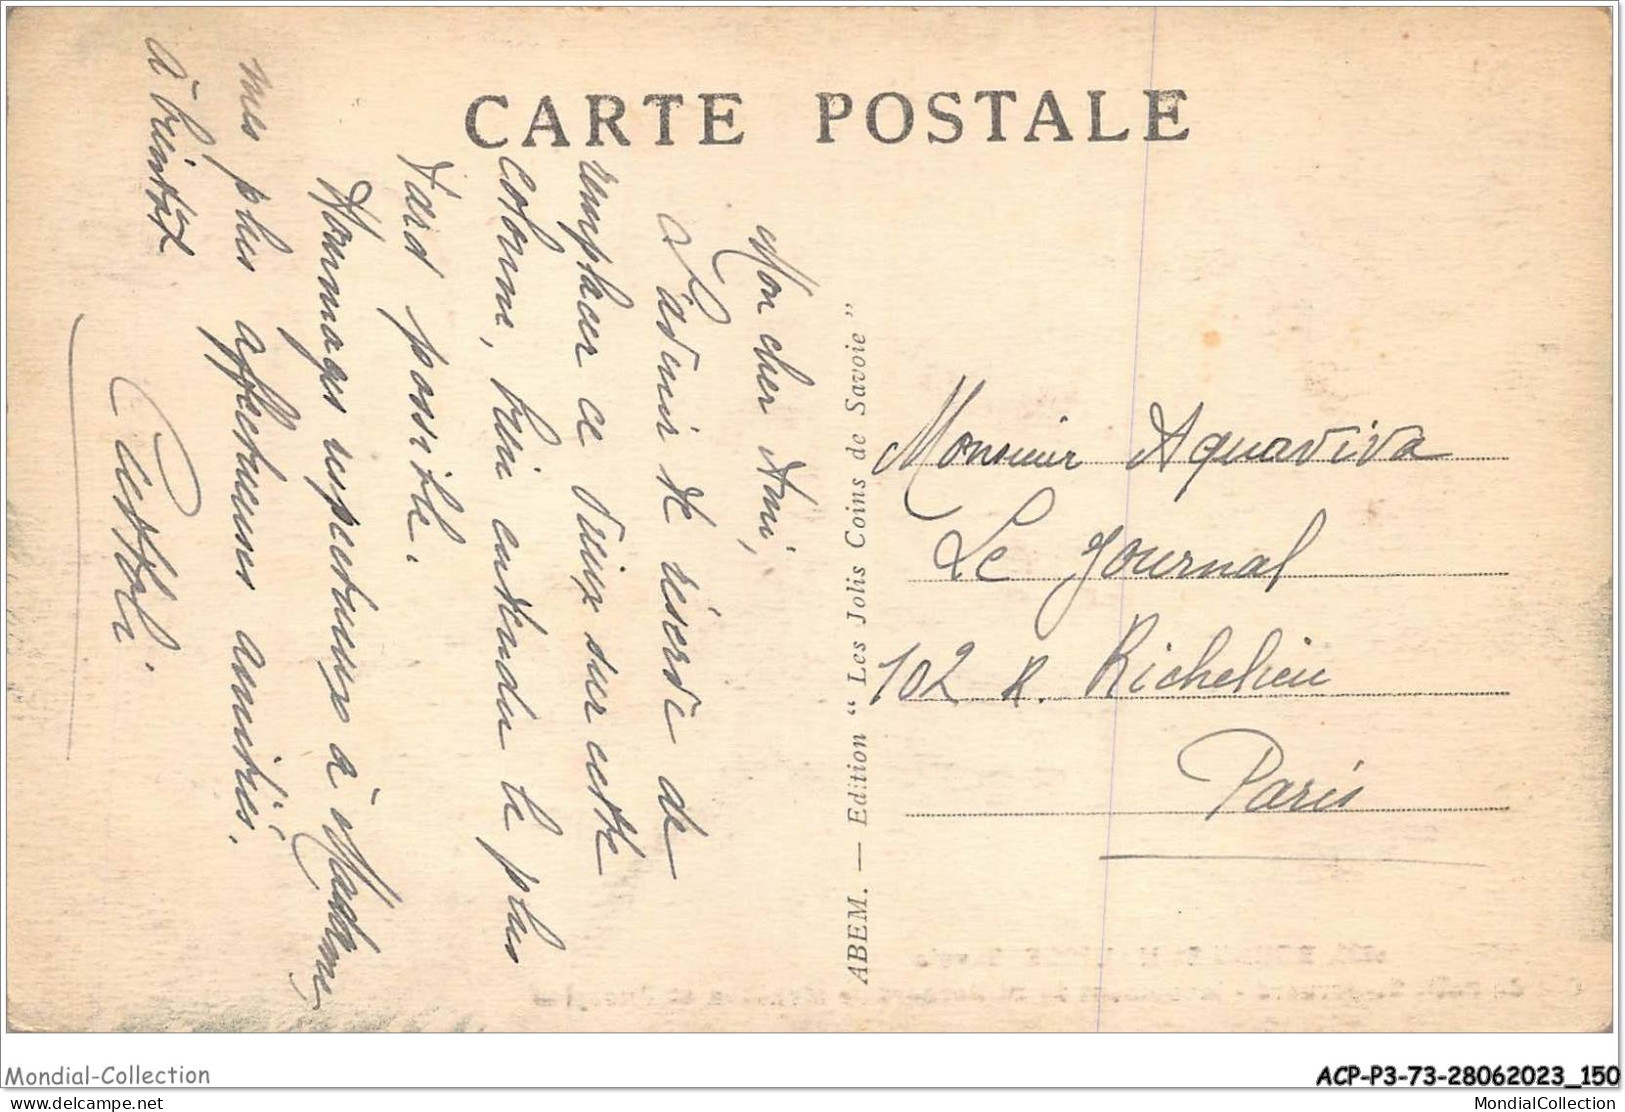 CARTE POSTALE
Mon cher Ami,
L'avenir te réserve de
remplacer ce vieux sur cette
colonne, bien entendu le plus
tard possible.
Hommages respectueux à Madame,
mes plus affectueuses amitiés.
à bientôt
ABEM. — Edition “ Les Jolis Coins de Savoie ”
Monsieur Aquaviva
Le Journal
102 R. Richelieu
Paris
Mondial-Collection
ACP-P3-73-28062023_150
delcampe.net
MondialCollection